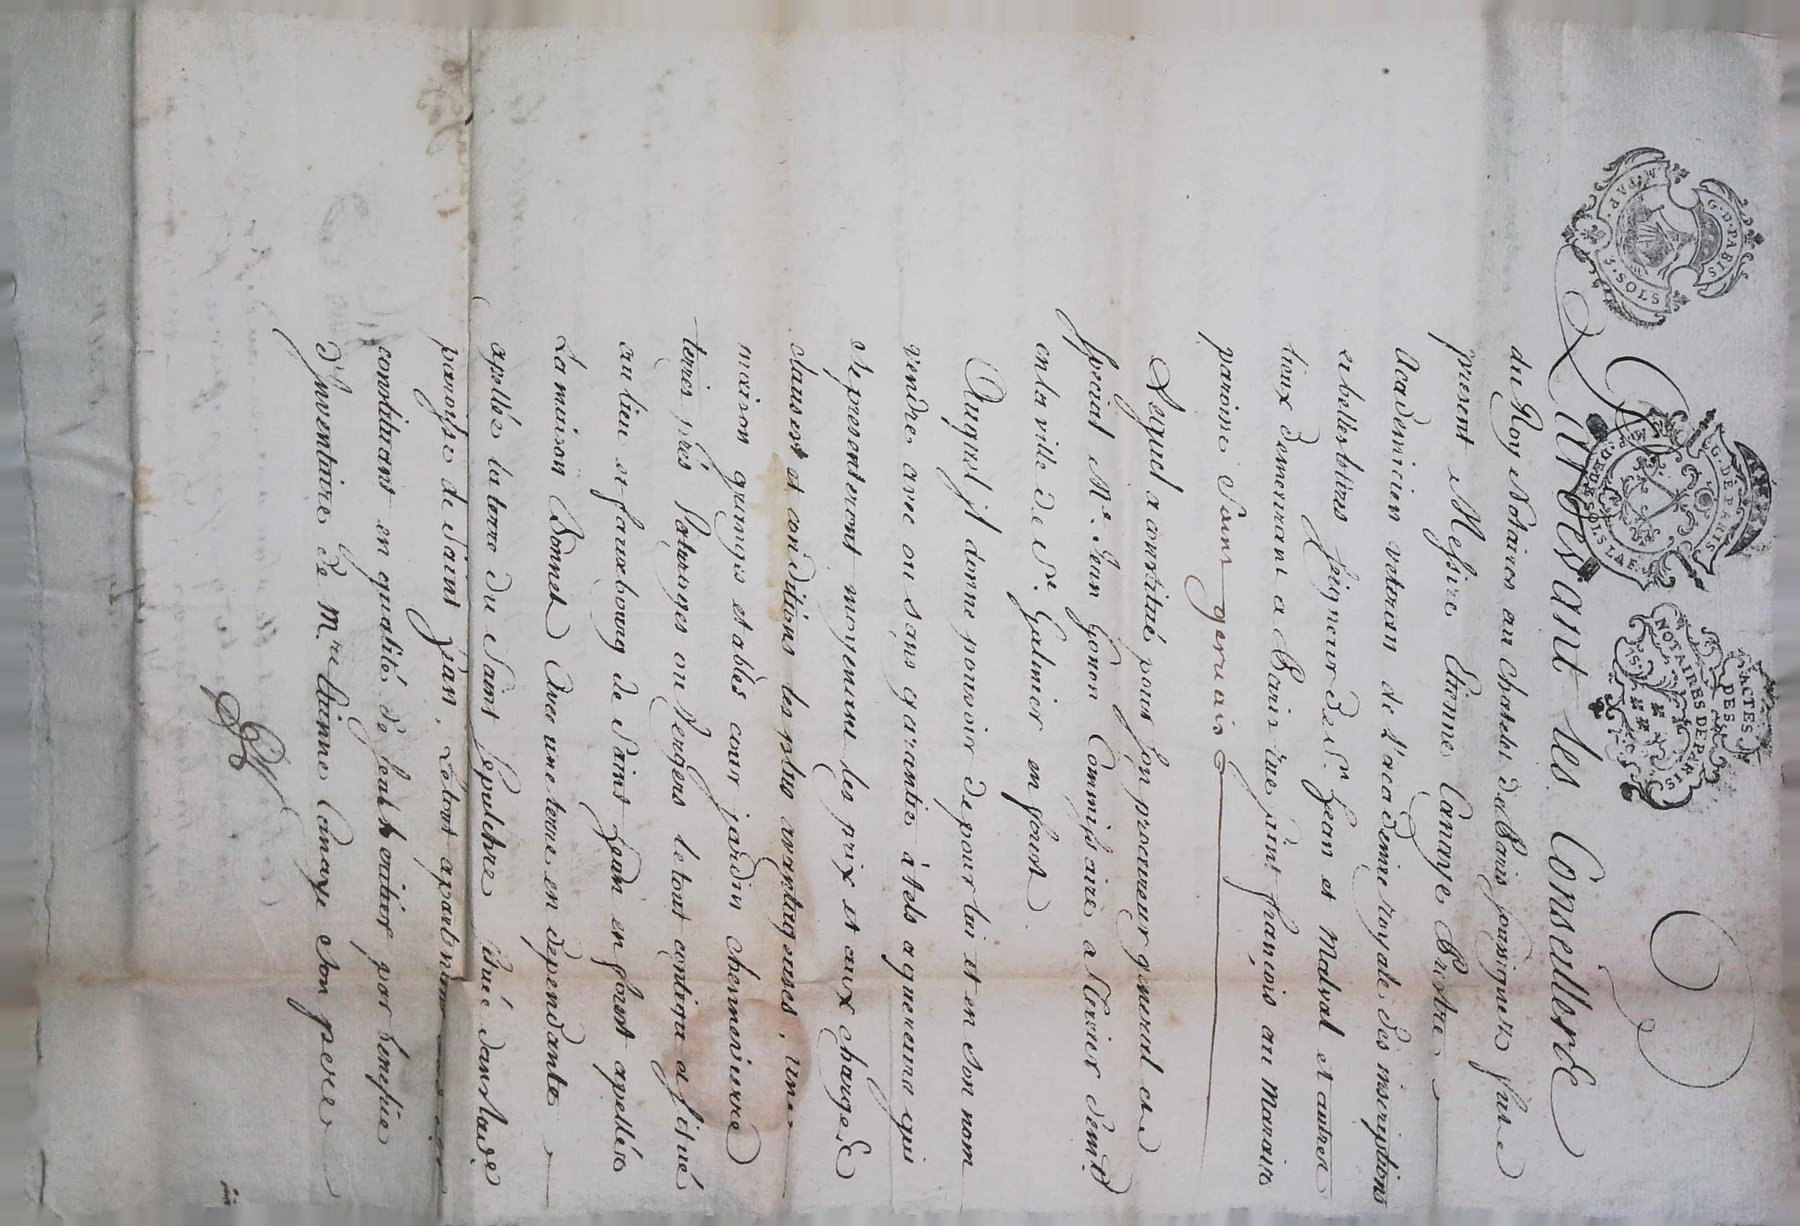 G. D. PARIS
M. TAP. 3. SOLS
G. DE PARIS
MP. D. DEUX SOLS LA F.
ACTES
DES
NOTAIRES DE PARIS
Pardevant les Conseillers
du Roy Notaires au Chatelet de Paris soussignez fut
present Messire Etienne Cannaye Prestre
Academicien veteran de l'academie royale des inscriptions
et belles lettres Seigneur de St. Jean et Malval et autres
lieux demeurant a Paris rue saint françois au Marais
paroisse Saint gervais
Lequel a constitué pour son procureur general et
special Me. Jean Goron Commissaire a Terrier demt.
en la ville de St. Galmier en forest
Auquel jl donne pouvoir de pour lui et en son nom
vendre avec ou sans garantie à tels acquereurs qui
se presenteront moyennant les prix et aux charges
clauses et conditions les plus avantageuses, une
maison granges etables cour jardin chenneviere
terres prés Paturages ou Vergers le tout contigu et situé
au lieu et fauxbourg de saint Jean en forest apellée
La maison Bonnet Avec une terre en dependante
apellée la terre du Saint sepulchre située dans lad.e
paroisse de saint Jean, Le tout apartenant
constituant en qualité de seul heritier par benefice
d'Inventaire de Mre. Etienne Canaye son pere